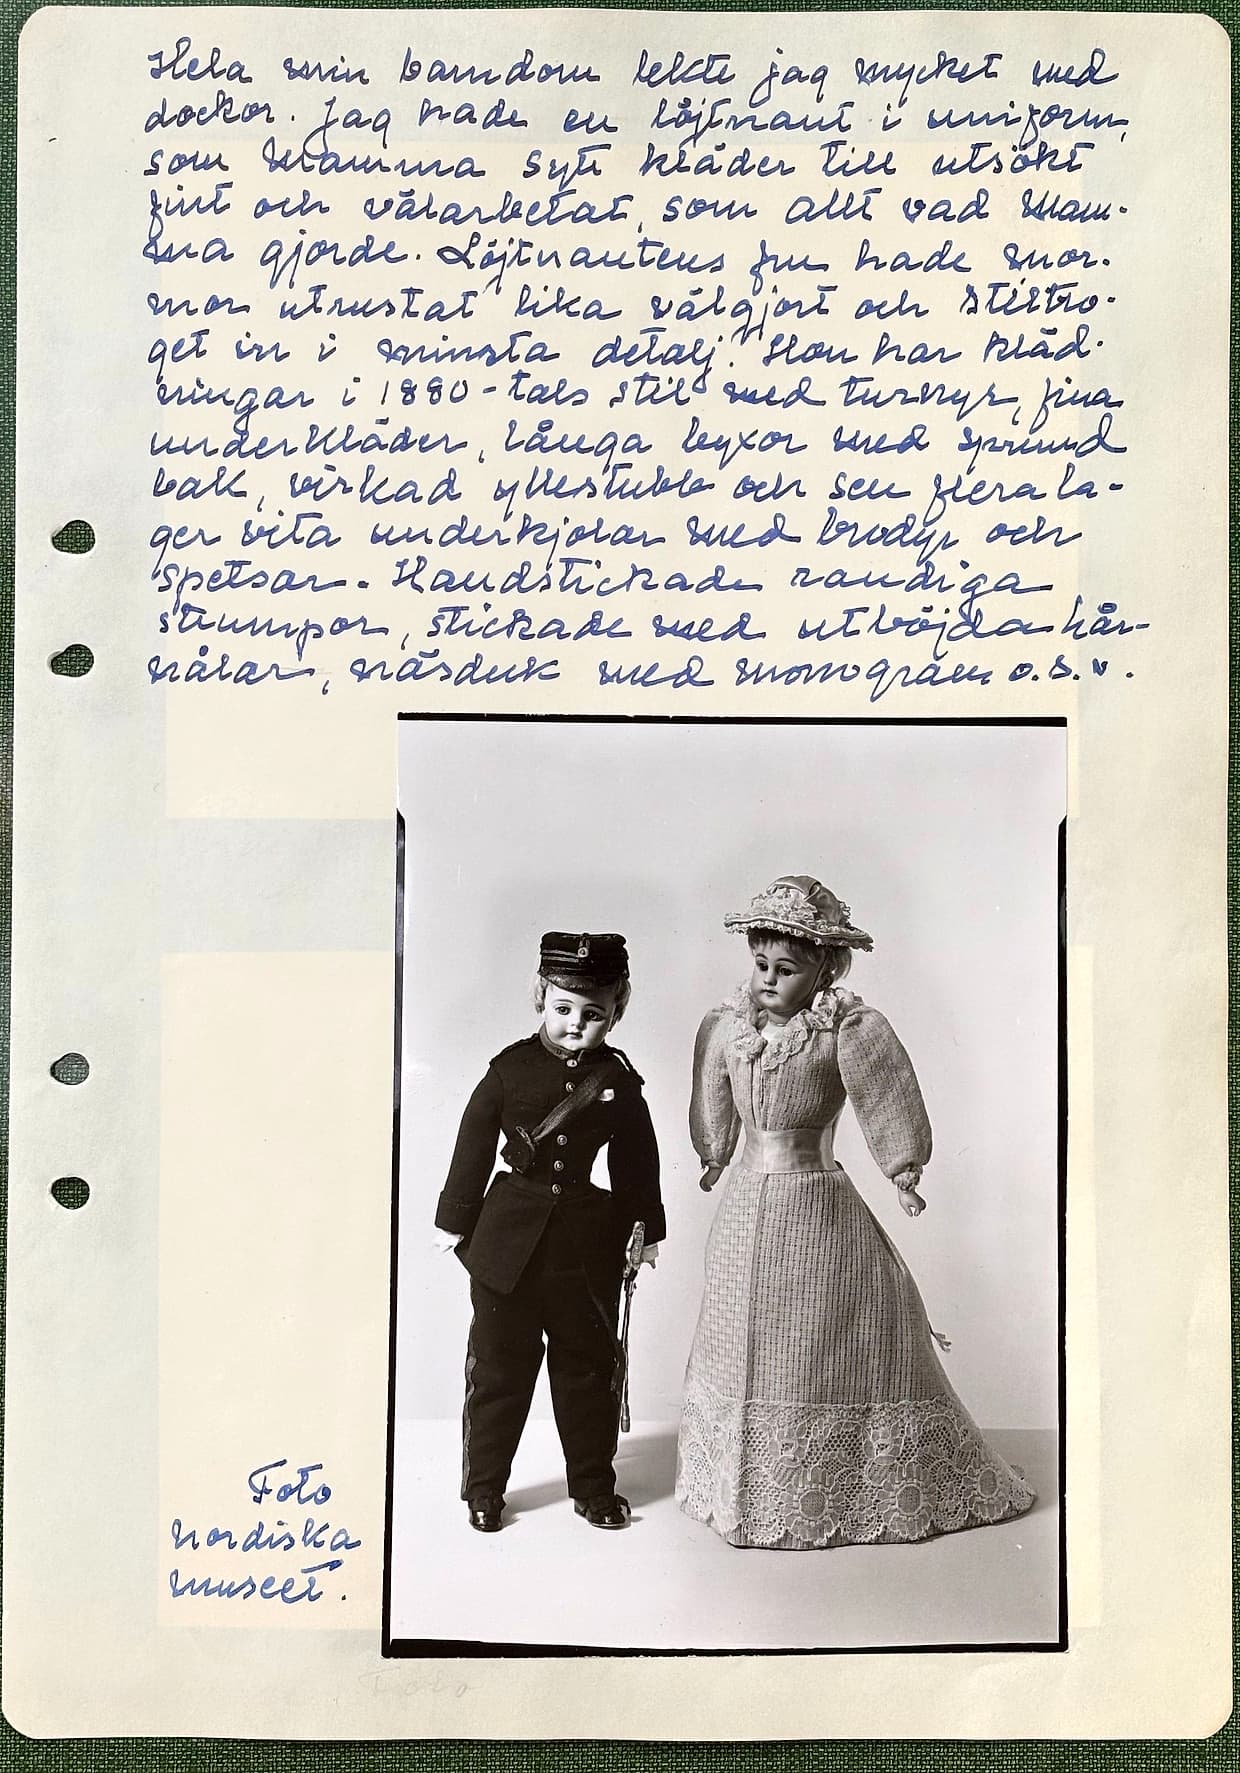 Hela min barndom lekte jag mycket med
dockor. Jag hade en löjtnant i uniform,
som Mamma sytt kläder till utsökt
fint och välarbetat, som allt vad Mam-
ma gjorde. Löjtnantens fru hade mor-
mor utrustat lika välgjort och stiltro-
get in i minsta detalj. Hon har kläd-
ningar i 1880-tals stil med turnyr, fina
underkläder, långa byxor med sprund
bak, virkad yllestubb och sen flera la-
ger vita underkjolar med brodyr och
spetsar. Handstickade randiga
strumpor, stickade med utböjda hår-
nålar, näsduk med monogram o.s.v.
Foto
Nordiska
museet.
Foto